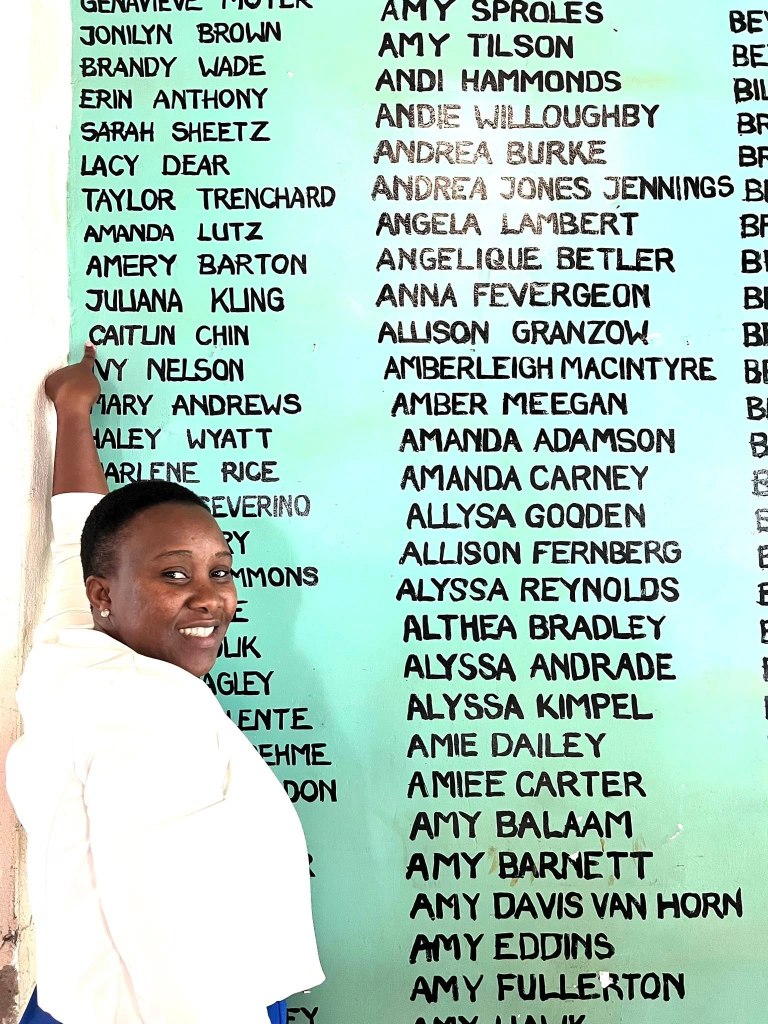 GENEVIEVE MOYER
JONILYN BROWN
BRANDY WADE
ERIN ANTHONY
SARAH SHEETZ
LACY DEAR
TAYLOR TRENCHARD
AMANDA LUTZ
AMERY BARTON
JULIANA KLING
CAITLIN CHIN
IVY NELSON
MARY ANDREWS
HALEY WYATT
DARLENE RICE
SEVERINO
AMY SPROLES
AMY TILSON
ANDI HAMMONDS
ANDIE WILLOUGHBY
ANDREA BURKE
ANDREA JONES JENNINGS
ANGELA LAMBERT
ANGELIQUE BETLER
ANNA FEVERGEON
ALLISON GRANZOW
AMBERLEIGH MACINTYRE
AMBER MEEGAN
AMANDA ADAMSON
AMANDA CARNEY
ALLYSA GOODEN
ALLISON FERNBERG
ALYSSA REYNOLDS
ALTHEA BRADLEY
ALYSSA ANDRADE
ALYSSA KIMPEL
AMIE DAILEY
AMIEE CARTER
AMY BALAAM
AMY BARNETT
AMY DAVIS VAN HORN
AMY EDDINS
AMY FULLERTON
AMY